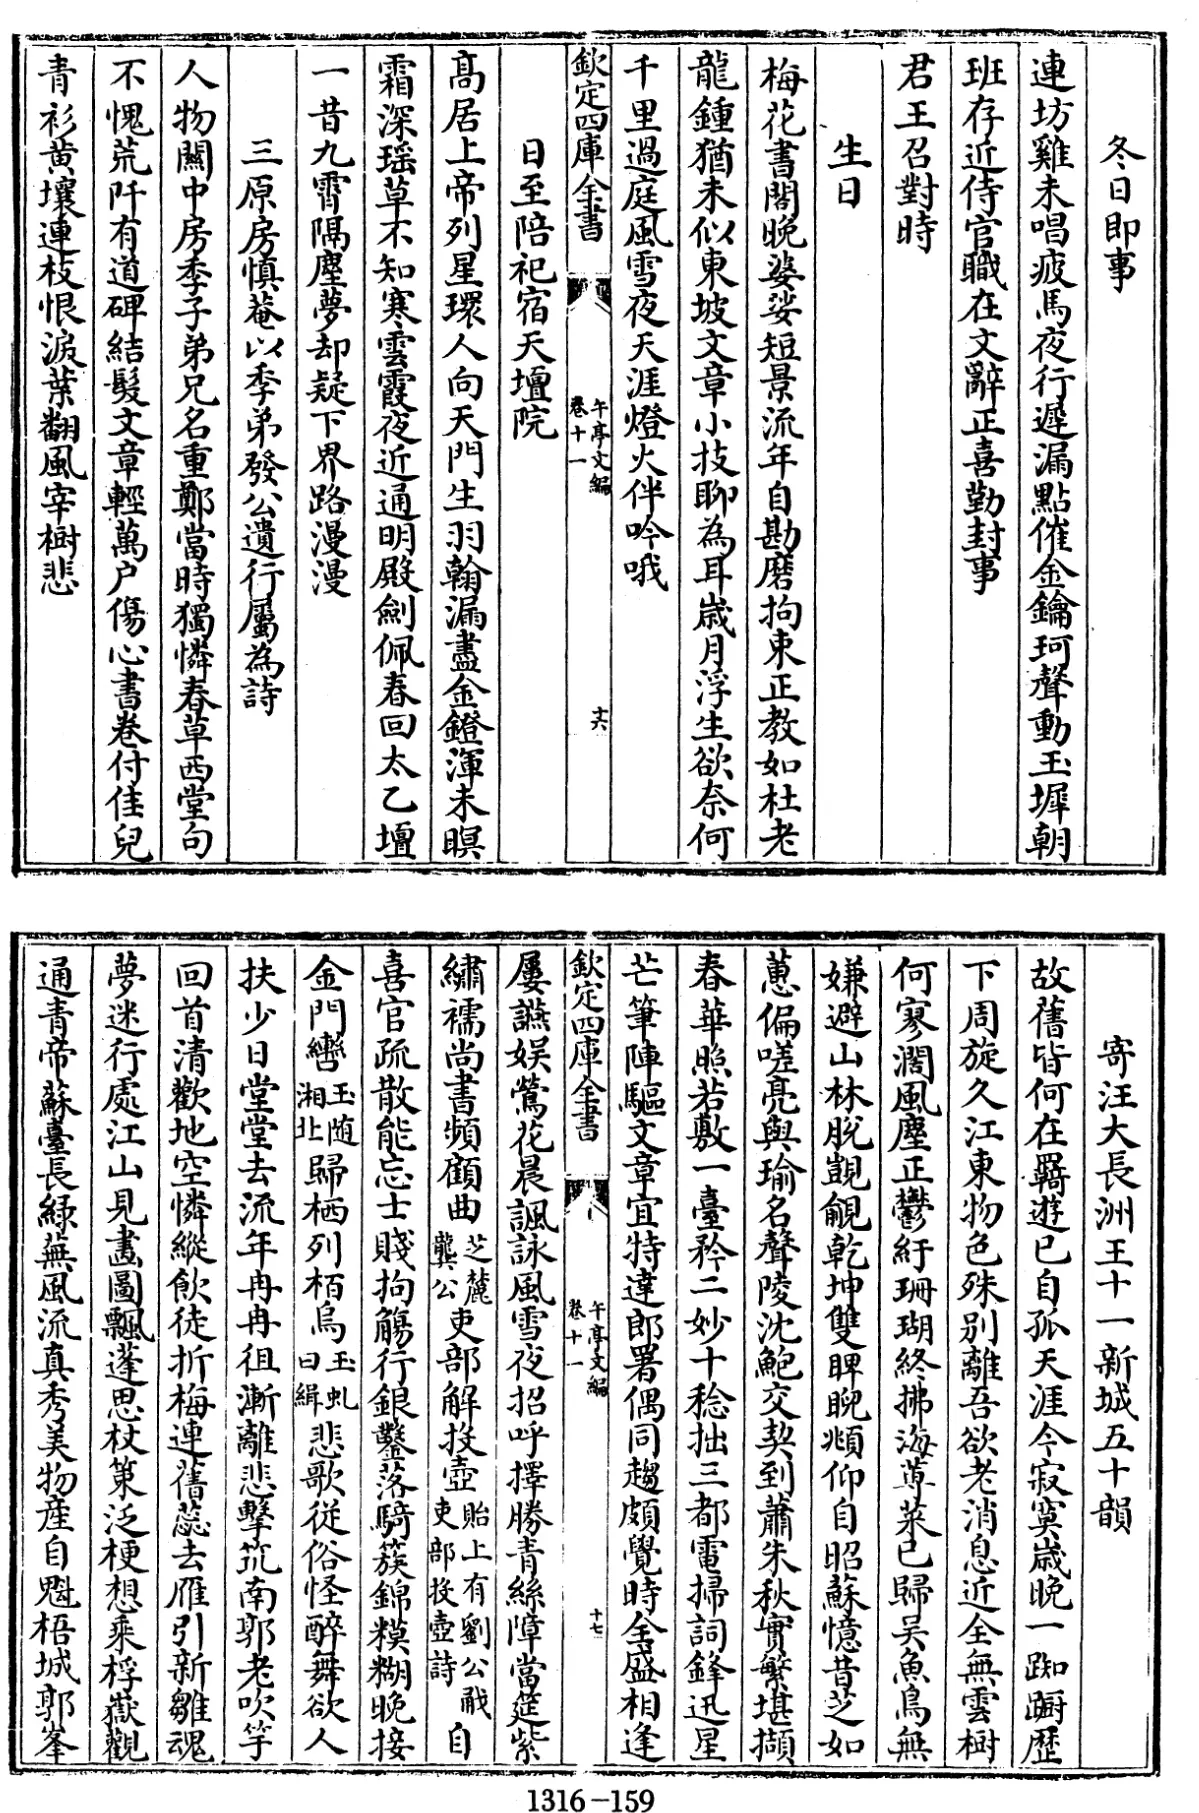 冬日即事
連坊雞未唱疲馬夜行遲漏點催金鑰珂聲動玉墀朝
班存近侍官職在文辭正喜勤封事
君王召對時
生日
梅花書閣晚婆娑短景流年自勘磨拘束正教如杜老
龍鍾猶未似東坡文章小技聊為耳歲月浮生欲奈何
千里過庭風雪夜天涯燈火伴吟哦
欽定四庫全書
午亭文編
卷十一
十六
日至陪祀宿天壇院
高居上帝列星環人向天門生羽翰漏盡金鐙渾未暝
霜深瑤草不知寒雲霞夜近通明殿劍佩春回太乙壇
一昔九霄隔塵夢却疑下界路漫漫
三原房慎菴以季弟發公遺行屬為詩
人物關中房季子弟兄名重鄭當時獨憐春草西堂句
不愧荒阡有道碑結髮文章輕萬户傷心書卷付佳兒
青衫黃壤連枝恨淚葉翻風宰樹悲
寄汪大長洲王十一新城五十韻
故舊皆何在羇遊已自孤天涯今寂寞歲晚一踟蹰歷
下周旋久江東物色殊别離吾欲老消息近全無雲樹
何寥濶風塵正鬱紆珊瑚終拂海蓴菜已歸吳魚鳥無
嫌避山林脱覬覦乾坤雙睥睨頫仰自昭蘇憶昔芝如
蕙偏嗟亮與瑜名聲陵沈鮑交契到蕭朱秋實繁堪擷
春華照若敷一臺矜二妙十稔拙三都電掃詞鋒迅星
芒筆陣驅文章宜特達郎署偶同趨頗覺時全盛相逢
欽定四庫全書
午亭文編
卷十一
十七
屢讌娱鶯花晨諷詠風雪夜招呼擇勝青絲障當筵紫
繡襦尚書頻顧曲芝麓龔公吏部解投壺貽上有劉公㦷吏部投壺詩自
喜官疏散能忘士賤拘觴行銀鑿落騎簇錦糢糊晚接
金門轡玉随湘北歸栖列栢烏玉虬曰緝悲歌從俗怪醉舞欲人
扶少日堂堂去流年冉冉徂漸離悲擊筑南郭老吹竽
回首清歡地空憐縱飲徒折梅連舊蕊去雁引新雛魂
夢迷行處江山見畫圖飄蓬思杖策泛梗想乘桴嶽觀
通青帝蘇臺長緑蕪風流真秀美物産自魁梧城郭峯
1316-159